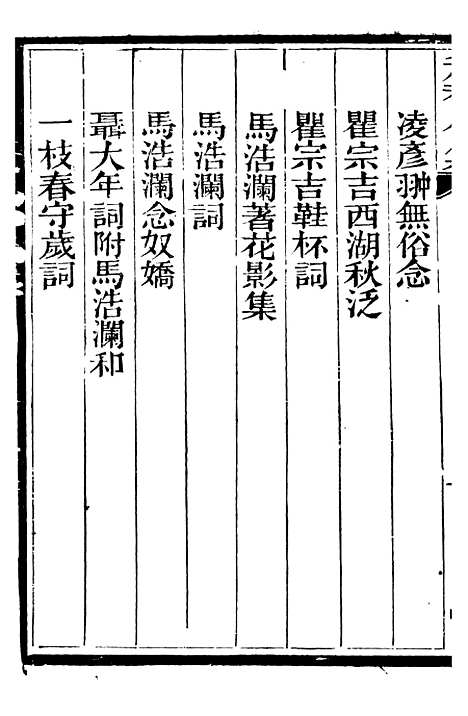 凌彥翀無俗念
瞿宗吉西湖秋泛
瞿宗吉鞋杯詞
馬浩瀾著花影集
馬浩瀾詞
馬浩瀾念奴嬌
聶大年詞附馬浩瀾和
一枝春守歲詞